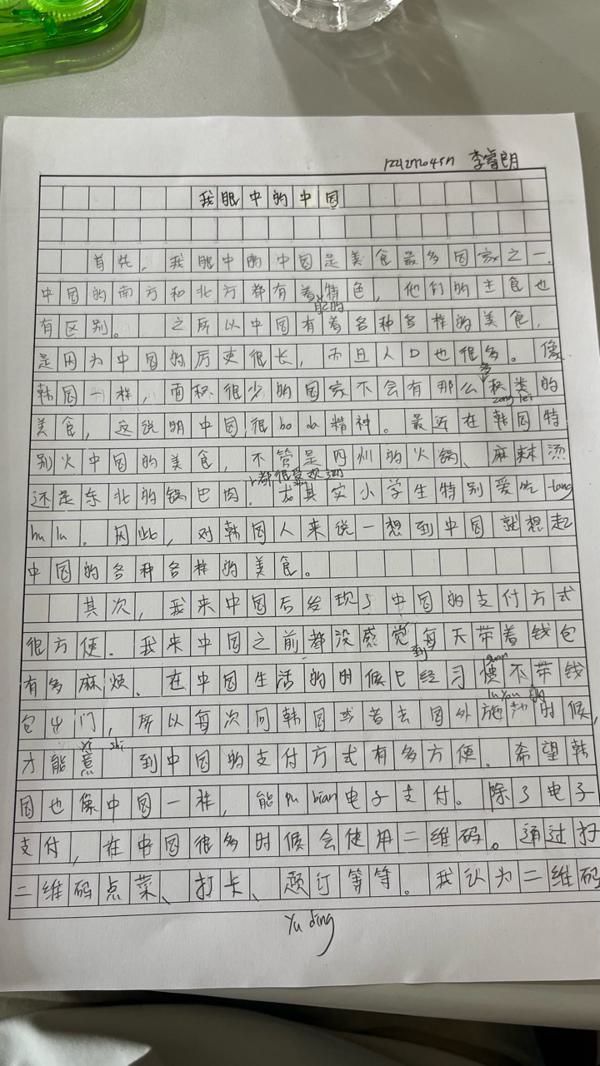 李睿朗
我眼中的中国
首先，我眼中的中国是美食最多国家之一.
中国的南方和北方都有着特色，他们的主食也
自己的
有区别。之所以中国有着各种各样的美食，
是因为中国的历史很长，而且人口也很多。像
韩国一样，面积很少的国家不会有那么多种类的
zong lei
美食，这说明中国很bo da精神。最近在韩国特
别火中国的美食，不管是四川的火锅、麻辣烫
还是东北的锅包肉，都很受欢迎
尤其实小学生特别爱吃tang
hu lu. 因此，对韩国人来说一想到中国就想起
中国的各种各样的美食。
其次，我来中国后发现了中国的支付方式
很方便．我来中国之前都没感觉到每天带着钱包
有多麻烦、在中国生活的时候已经习惯不带钱
guan
包出门，所以每次回韩国或者去国外旅游的时候，
lu you
才能意到中国的支付方式有多方便．希望韩
yi shi
国也像中国一样，能pu bian电子支付。除了电子
支付，在中国很多时候会使用二维码。通过扫
二维码点菜、打卡、预订等等。我认为二维码
yu ding